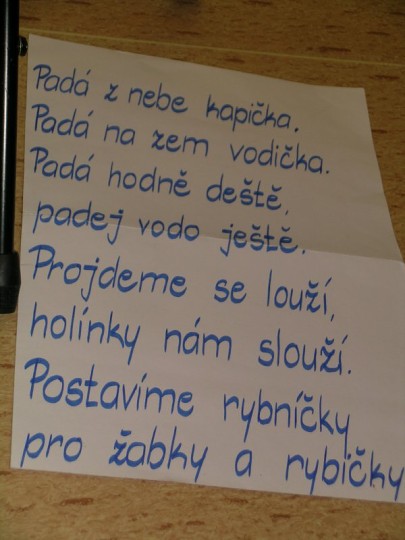 Padá z nebe kapička.
Padá na zem vodička.
Padá hodně deště,
padej vodo ještě.
Projdeme se louží,
holínky nám slouží.
Postavíme rybníčky
pro žabky a rybičky